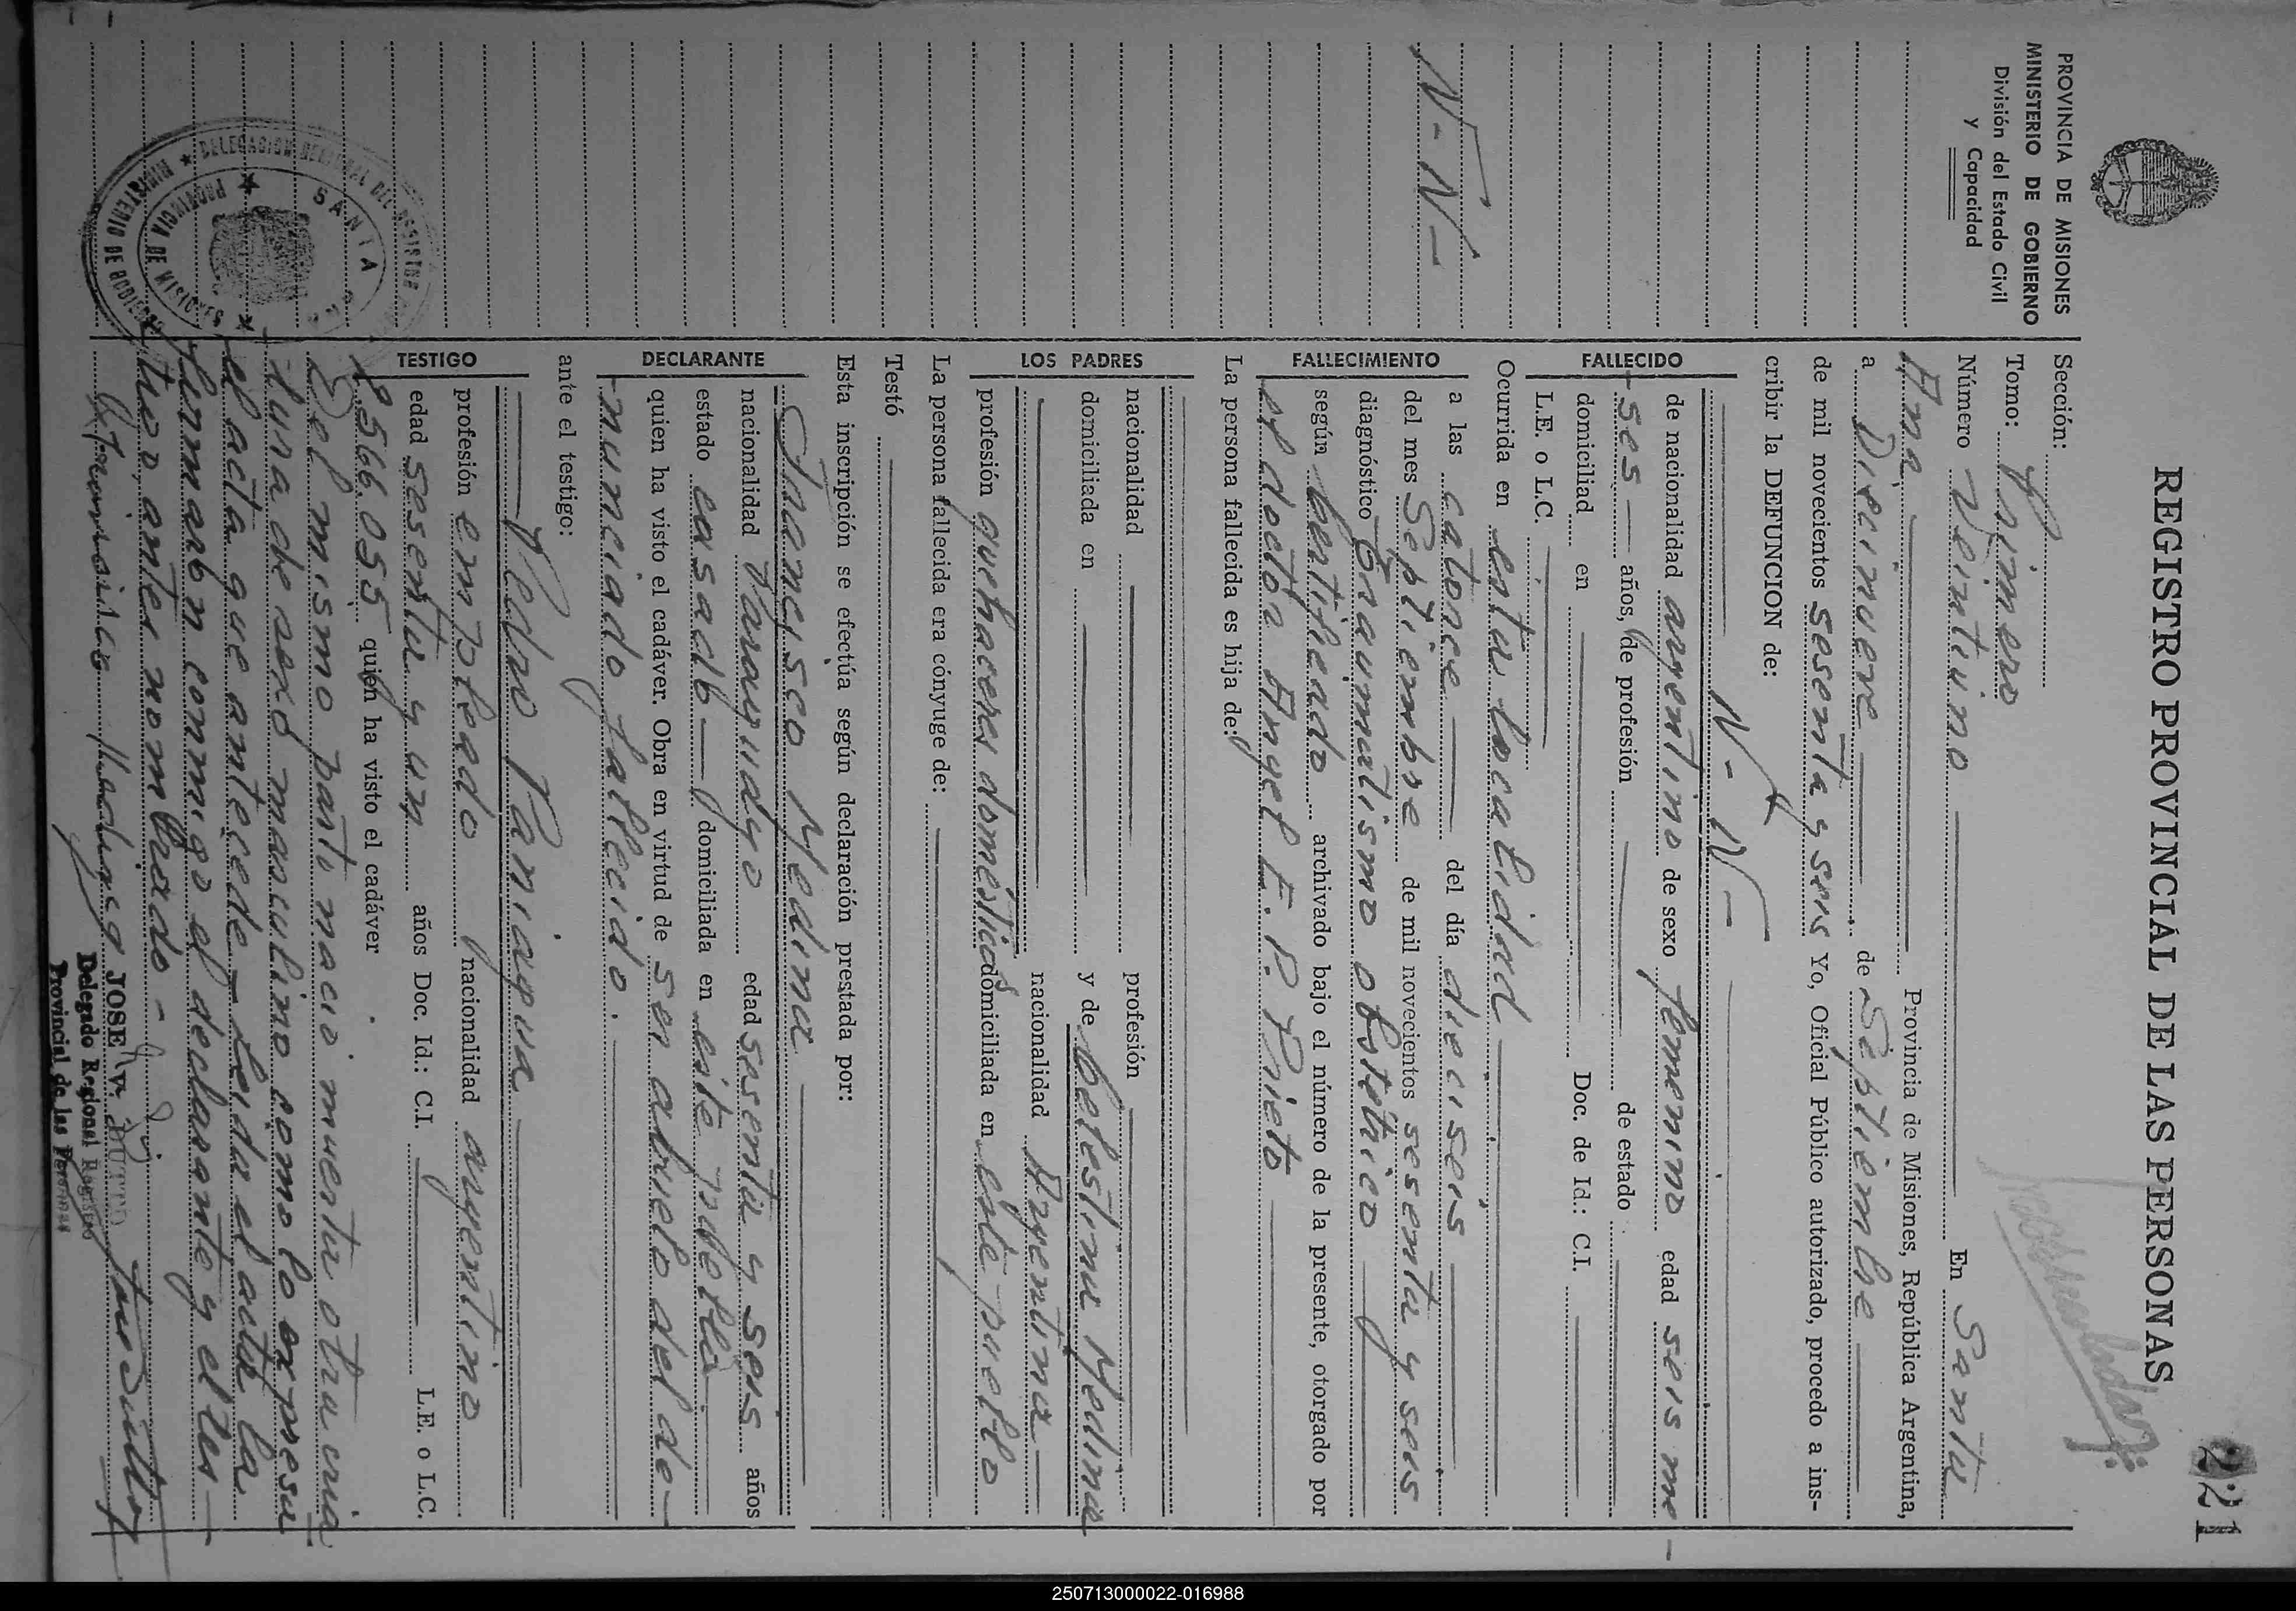 221
REGISTRO PROVINCIAL DE LAS PERSONAS
PROVINCIA DE MISIONES
MINISTERIO DE GOBIERNO
División del Estado Civil
y Capacidad
Sección:
Tomo: Primero
Número Veintiuno En Santa
Ana Provincia de Misiones, República Argentina,
a Diecinueve de Septiembre
de mil novecientos sesenta y seis Yo, Oficial Público autorizado, procedo a ins-
cribir la DEFUNCION de:
N-N-
N-N-
FALLECIDO
de nacionalidad argentino de sexo femenino edad seis me-
ses años, de profesión de estado
domiciliad en Doc. de Id.: C.I.
L.E. o L.C.
FALLECIMIENTO
Ocurrida en esta localidad
a las catorce del día dieciseis
del mes Septiembre de mil novecientos sesenta y seis
diagnóstico Traumatismo obstétrico
según certificado archivado bajo el número de la presente, otorgado por
el doctor Angel E. P. Prieto
La persona fallecida es hija de:
LOS PADRES
nacionalidad profesión
domiciliada en y de Celestina Medina
nacionalidad Argentina
profesión quehaceres domésticos domiciliada en este pueblo
La persona fallecida era cónyuge de:
Testó
Esta inscripción se efectúa según declaración prestada por:
DECLARANTE
Francisco Medina
nacionalidad Paraguayo edad sesenta y seis años
estado casado domiciliada en este pueblo
quien ha visto el cadáver. Obra en virtud de ser abuelo del de-
nunciado fallecido.
ante el testigo:
TESTIGO
Pedro Paniagua
profesión empleado nacionalidad argentino
edad sesenta y un años Doc. Id.: C.I. L.E. o L.C.
quién ha visto el cadáver
Del mismo parto nació muerta otra cria-
tura de sexo masculino como lo expresa
el acta que antecede - Leida el acta la
firmaron conmigo el declarante y el tes-
tigo antes nombrado -
JOSE
Delegado Regional Registro
Provincial de las Personas
DELEGACION REGIONAL DEL REGISTRO
SANTA ANA
PROVINCIA DE MISIONES
MINISTERIO DE GOBIERNO
250713000022-016988